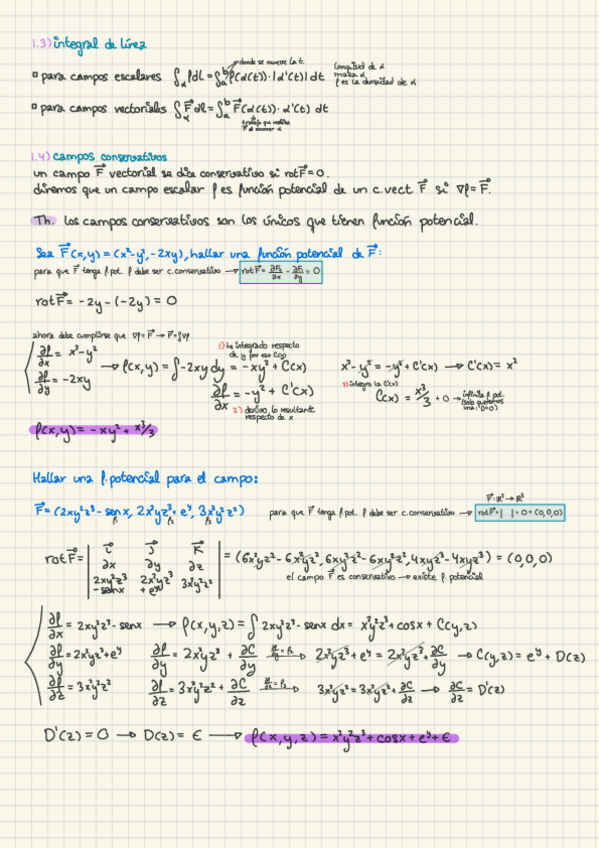 1.3) integral de línea
▫ para campos escalares ∫_α f dl = ∫_a^b f(α(t))·|α'(t)| dt
donde se mueve la t.
longitud de α
masa α
f es la densidad de α
▫ para campos vectoriales ∫_α F⃗ dl = ∫_a^b F⃗(α(t))·α'(t) dt
trabajo que realiza
F⃗ al recorrer α
1.4) campos conservativos
un campo F⃗ vectorial se dice conservativo si rot F⃗ = 0.
diremos que un campo escalar f es función potencial de un c.vect F⃗ si ∇f = F⃗.
Th. los campos conservativos son los únicos que tienen función potencial.
Sea F⃗(x,y) = (x²-y², -2xy), hallar una función potencial de F⃗:
para que F⃗ tenga f.pot. f debe ser c.conservativo → rot F⃗ = ∂F₂/∂x - ∂F₁/∂y = 0
rot F⃗ = -2y - (-2y) = 0
ahora debe cumplirse que ∇f = F⃗ →
∂f/∂x = x²-y²
∂f/∂y = -2xy
→ f(x,y) = ∫-2xy dy = -xy² + C(x)
1) he integrado respecto
de y por eso C(x)
∂f/∂x = -y² + C'(x)
2) derivo lo resultante
respecto de x
x²-y² = -y² + C'(x) → C'(x) = x²
3) integro la C'(x)
C(x) = x³/3 + 0 → infinitas f. pot.
(solo queremos
una: 0=0)
f(x,y) = -xy² + x³/3
Hallar una f.potencial para el campo:
F⃗ = (2xy²z³ - senx, 2x²yz³ + e^y, 3x²y²z²)
para que F⃗ tenga f.pot. f debe ser c.conservativo → rot F⃗ = | | = 0 = (0,0,0)
F⃗: R³ → R³
rot F⃗ = | i⃗ j⃗ k⃗ |
∂x ∂y ∂z
2xy²z³ - senx 2x²yz³ + e^y 3x²y²z²
= (6x²yz² - 6x²yz², 6xy²z² - 6xy²z², 4xyz³ - 4xyz³) = (0,0,0)
el campo F⃗ es conservativo → existe f. potencial
∂f/∂x = 2xy²z³ - senx → f(x,y,z) = ∫ 2xy²z³ - senx dx = x²y²z³ + cosx + C(y,z)
∂f/∂y = 2x²yz³ + e^y ∂f/∂y = 2x²yz³ + ∂C/∂y → 2x²yz³ + e^y = 2x²yz³ + ∂C/∂y → C(y,z) = e^y + D(z)
∂f/∂z = 3x²y²z² ∂f/∂z = 3x²y²z² + ∂C/∂z → 3x²y²z² = 3x²y²z² + ∂C/∂z → ∂C/∂z = D'(z)
D'(z) = 0 → D(z) = ϵ → f(x,y,z) = x²y²z³ + cosx + e^y + ϵ